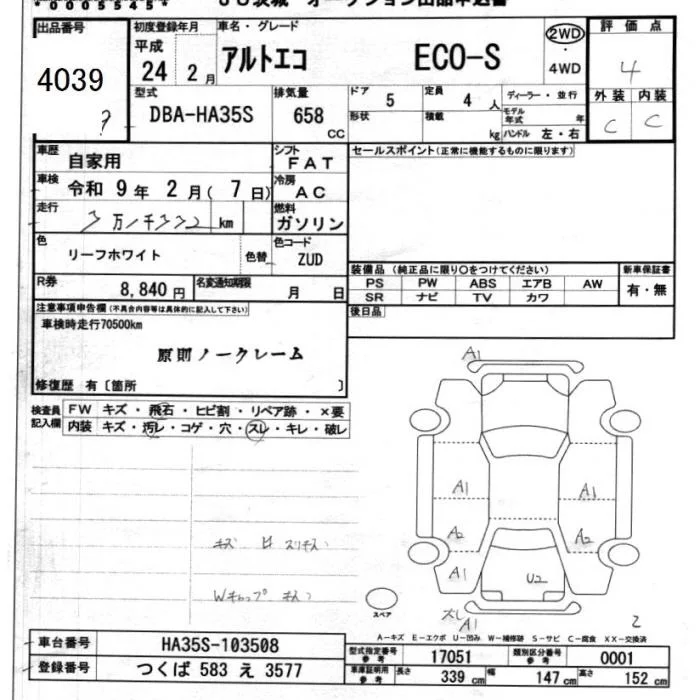 *0005545*
出品番号 初度登録年月 車名・グレード 2WD 評価点
平成 24 2月 アルトエコ ECO-S 4WD 4
4039
型式 排気量 ドア 5 定員 4人 ディーラー・並行 外装 内装
DBA-HA35S 658 CC 形状 積載 kg モデル年式 年 ハンドル 左・右 C C
車歴 自家用 シフト FAT セールスポイント(正常に機能するものに限ります)
車検 令和 9年 2月(7日) 冷房 AC
走行 km 燃料 ガソリン
色 リーフホワイト 色替 色コード ZUD
装備品(純正品に限り○をつけてください) 新車保証書
R券 8,840円 名変通知期限 月 日
PS PW ABS エアB AW 有・無
SR ナビ TV カワ
注意事項申告欄(不具合内容等は具体的に記入して下さい) 後日品
車検時走行70500km
原則ノークレーム
修復歴 有〔箇所 〕
検査員記入欄 FW キズ・飛石・ヒビ割・リペア跡・×要
内装 キズ・汚レ・コゲ・穴・スレ・キレ・破レ
A1
A1 A1
A2 A2
A1 U2
A1
キズ
スペア
2
A-キズ E-エクボ U-凹み W-補修跡 S-サビ C-腐食 XX-交換済
車台番号 HA35S-103508
登録番号 つくば 583 え 3577
型式指定番号 参考 17051 類別区分番号 参考 0001
車庫証明用 参考 長さ 339 cm 幅 147 cm 高さ 152 cm